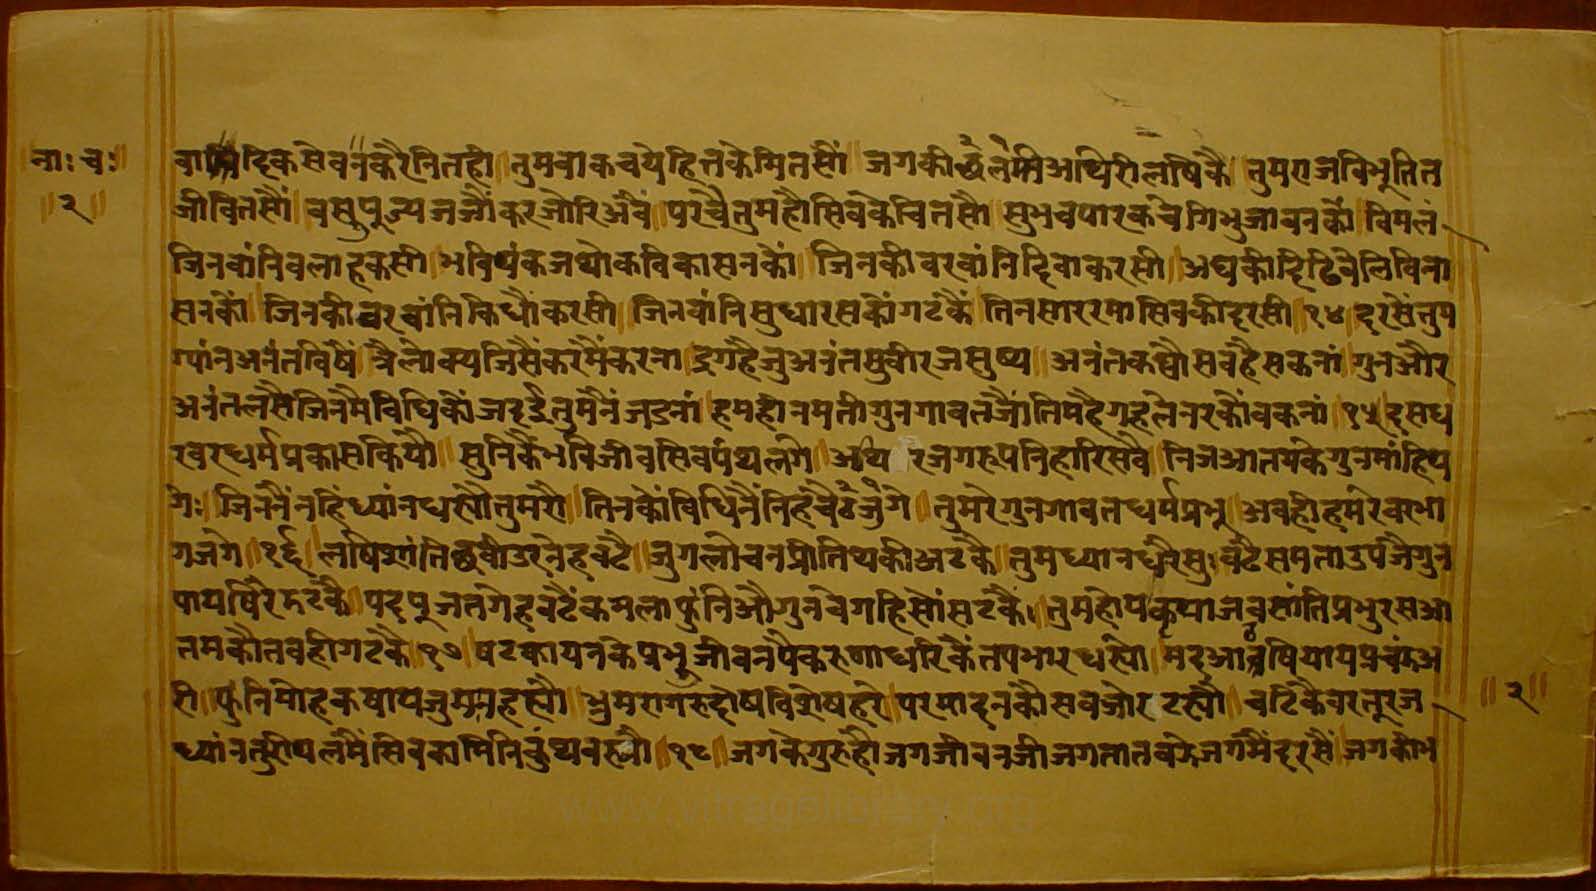 नाः चः
॥२॥
दिकसेवनकरैनितही॥तुमवाकचयेहितकेमितसौं॥जगकी आथिरीलषिकै॥तुमराजविभूतित
जीवितसौं॥वसुपूज्यजजौंकरजोरिअवै॥परचैतुमहौसिवकेचितसौं॥सुभवपारकचेगिभुजावनकौं॥विमलं
जिनवांनिवलाहकसी॥भविपंकजथोकविकासनकौं॥जिनकीवरवांनिदिवाकरसी॥अघकी वेलिविना
सनकौं॥जिनकीवरवांनिकिधौंकरसी॥जिनवांनिसुधारसकौंगटकैं॥तिनसाररमासिवकीदरसी॥१४॥दरसैंतुम
ग्यांनअनंतविषैं॥त्रैलोक्यजिसैंकरमैंकरना॥द्रगहैजुअनंतसुवीरजसुष्य॥अनंतकस्यौसवहैसकनां॥गुनऔर
अनंतलसैजिनमैविधिकौं तुमनैंजडनां॥हमहीनमतीगुनगावतजौंतिमहैगूहलेनरकौंवकनां॥१५॥दसध
रवरधर्मप्रकासकियौ॥सुनिकैंभविजीवसिवपंथलगे॥अथिरजगरूपनिहारिसवै॥निजआतमकेगुनमांहिप
गे॥जिननैंनहिंध्यांनधरयौतुमरौ॥तिनकौंविधिनैंनिहचै ॥तुमरेगुनगावतधर्मप्रभु॥अवहीहमरेवरभा
गजगे॥१६॥लषिशांतिछवीउरनेहवटै॥जुगलोचनप्रीतिथकीअटकै॥तुमध्यानधरैसु।वटैसमताउपजैगुन
पापषिरे टकै॥पदपूजतगेहवटैंकमलाफुंनिऔगुनचेगहिसौंसटकैं॥तुमहोप जवसांतिप्रभुरसआ
तमकौतवहीगटकै॥१७॥षटकायनकेप्रभूजीवनपैकरुणाधारिकैंतपभारधरयो॥ पंचकअ
री॥फुंनिमोहकषाय हरयौ॥भ्रमरागरुदोषविशेषहरो॥परमादनकौसवजोरटरयौ॥चटिकैवरतूरज
ध्यांनतुरीयलमैंसिवकामिनि वरयौ॥१८॥जगकेगुरुहौजगजीवनजीजगतातवडेजगमैंदरसैं॥जगकीभ
॥२॥
www.vitragalibrary.org